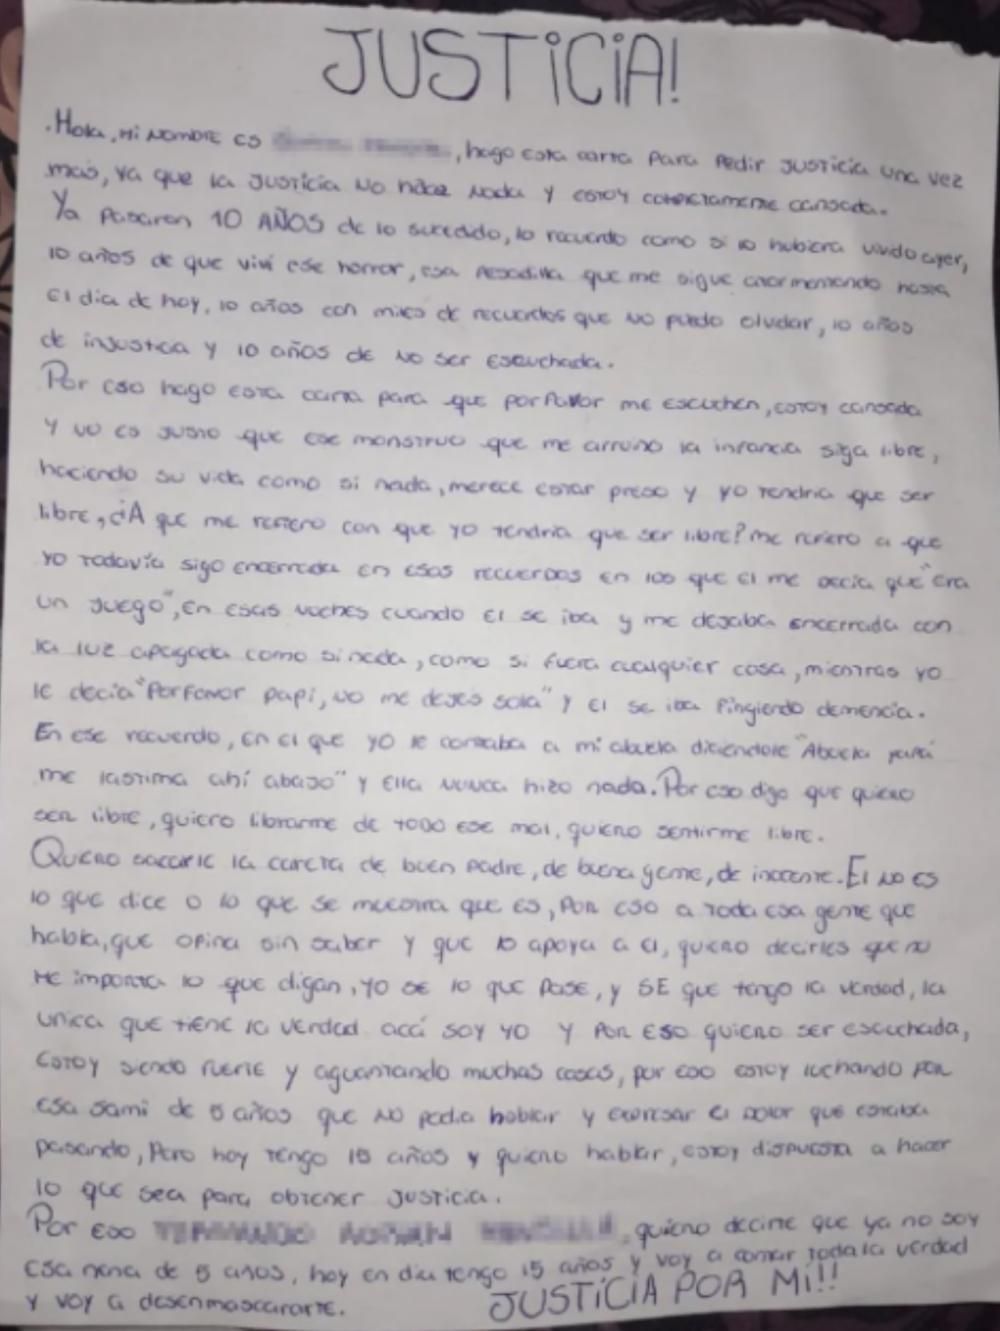 JUSTICIA!
.Hola, Mi NOMBRE ES , hago esta carta para pedir justicia una vez
mas, ya que la justicia no hace nada y estoy completamente cansada.
Ya pasaron 10 AÑOS de lo sucedido, lo recuerdo como si lo hubiera vivido ayer,
10 años de que viví ese horror, esa pesadilla que me sigue atormentando hasta
el día de hoy, 10 años con miles de recuerdos que no puedo olvidar, 10 años
de injusticia y 10 años de no ser escuchada.
Por eso hago esta carta para que porfavor me escuchen, estoy cansada
y no es justo que ese monstruo que me arruino la infancia siga libre,
haciendo su vida como si nada, merece estar preso y yo tendria que ser
libre, ¿A que me refiero con que yo tendria que ser libre? me refiero a que
yo todavía sigo encerrada en esos recuerdos en los que el me decia que "era
un juego", en esas noches cuando el se iba y me dejaba encerrada con
la luz apagada como si nada, como si fuera cualquier cosa, mientras yo
le decia "Porfavor papi, no me dejes sola" y el se iba fingiendo demencia.
En ese recuerdo, en el que yo le contaba a mi abuela diciendole "Abuela papá
me lastima ahí abajo" y ella nunca hizo nada. Por eso digo que quiero
ser libre, quiero librarme de todo ese mal, quiero sentirme libre.
Quiero sacarle la careta de buen padre, de buena gente, de inocente. El no es
lo que dice o lo que se muestra que es, por eso a toda esa gente que
habla, que opina sin saber y que lo apoya a el, quiero decirles que no
me importa lo que digan, yo se lo que pase, y SE que tengo la verdad, la
unica que tiene la verdad acá soy yo y por eso quiero ser escuchada,
estoy siendo fuerte y aguantando muchas cosas, por eso estoy luchando por
esa sami de 5 años que no podia hablar y expresar el dolor que estaba
pasando, pero hoy tengo 15 años y quiero hablar, estoy dispuesta a hacer
lo que sea para obtener justicia.
Por eso , quiero decirte que ya no soy
esa nena de 5 años, hoy en dia tengo 15 años y voy a contar toda la verdad
y voy a desenmascararte. JUSTICIA POR MI!!